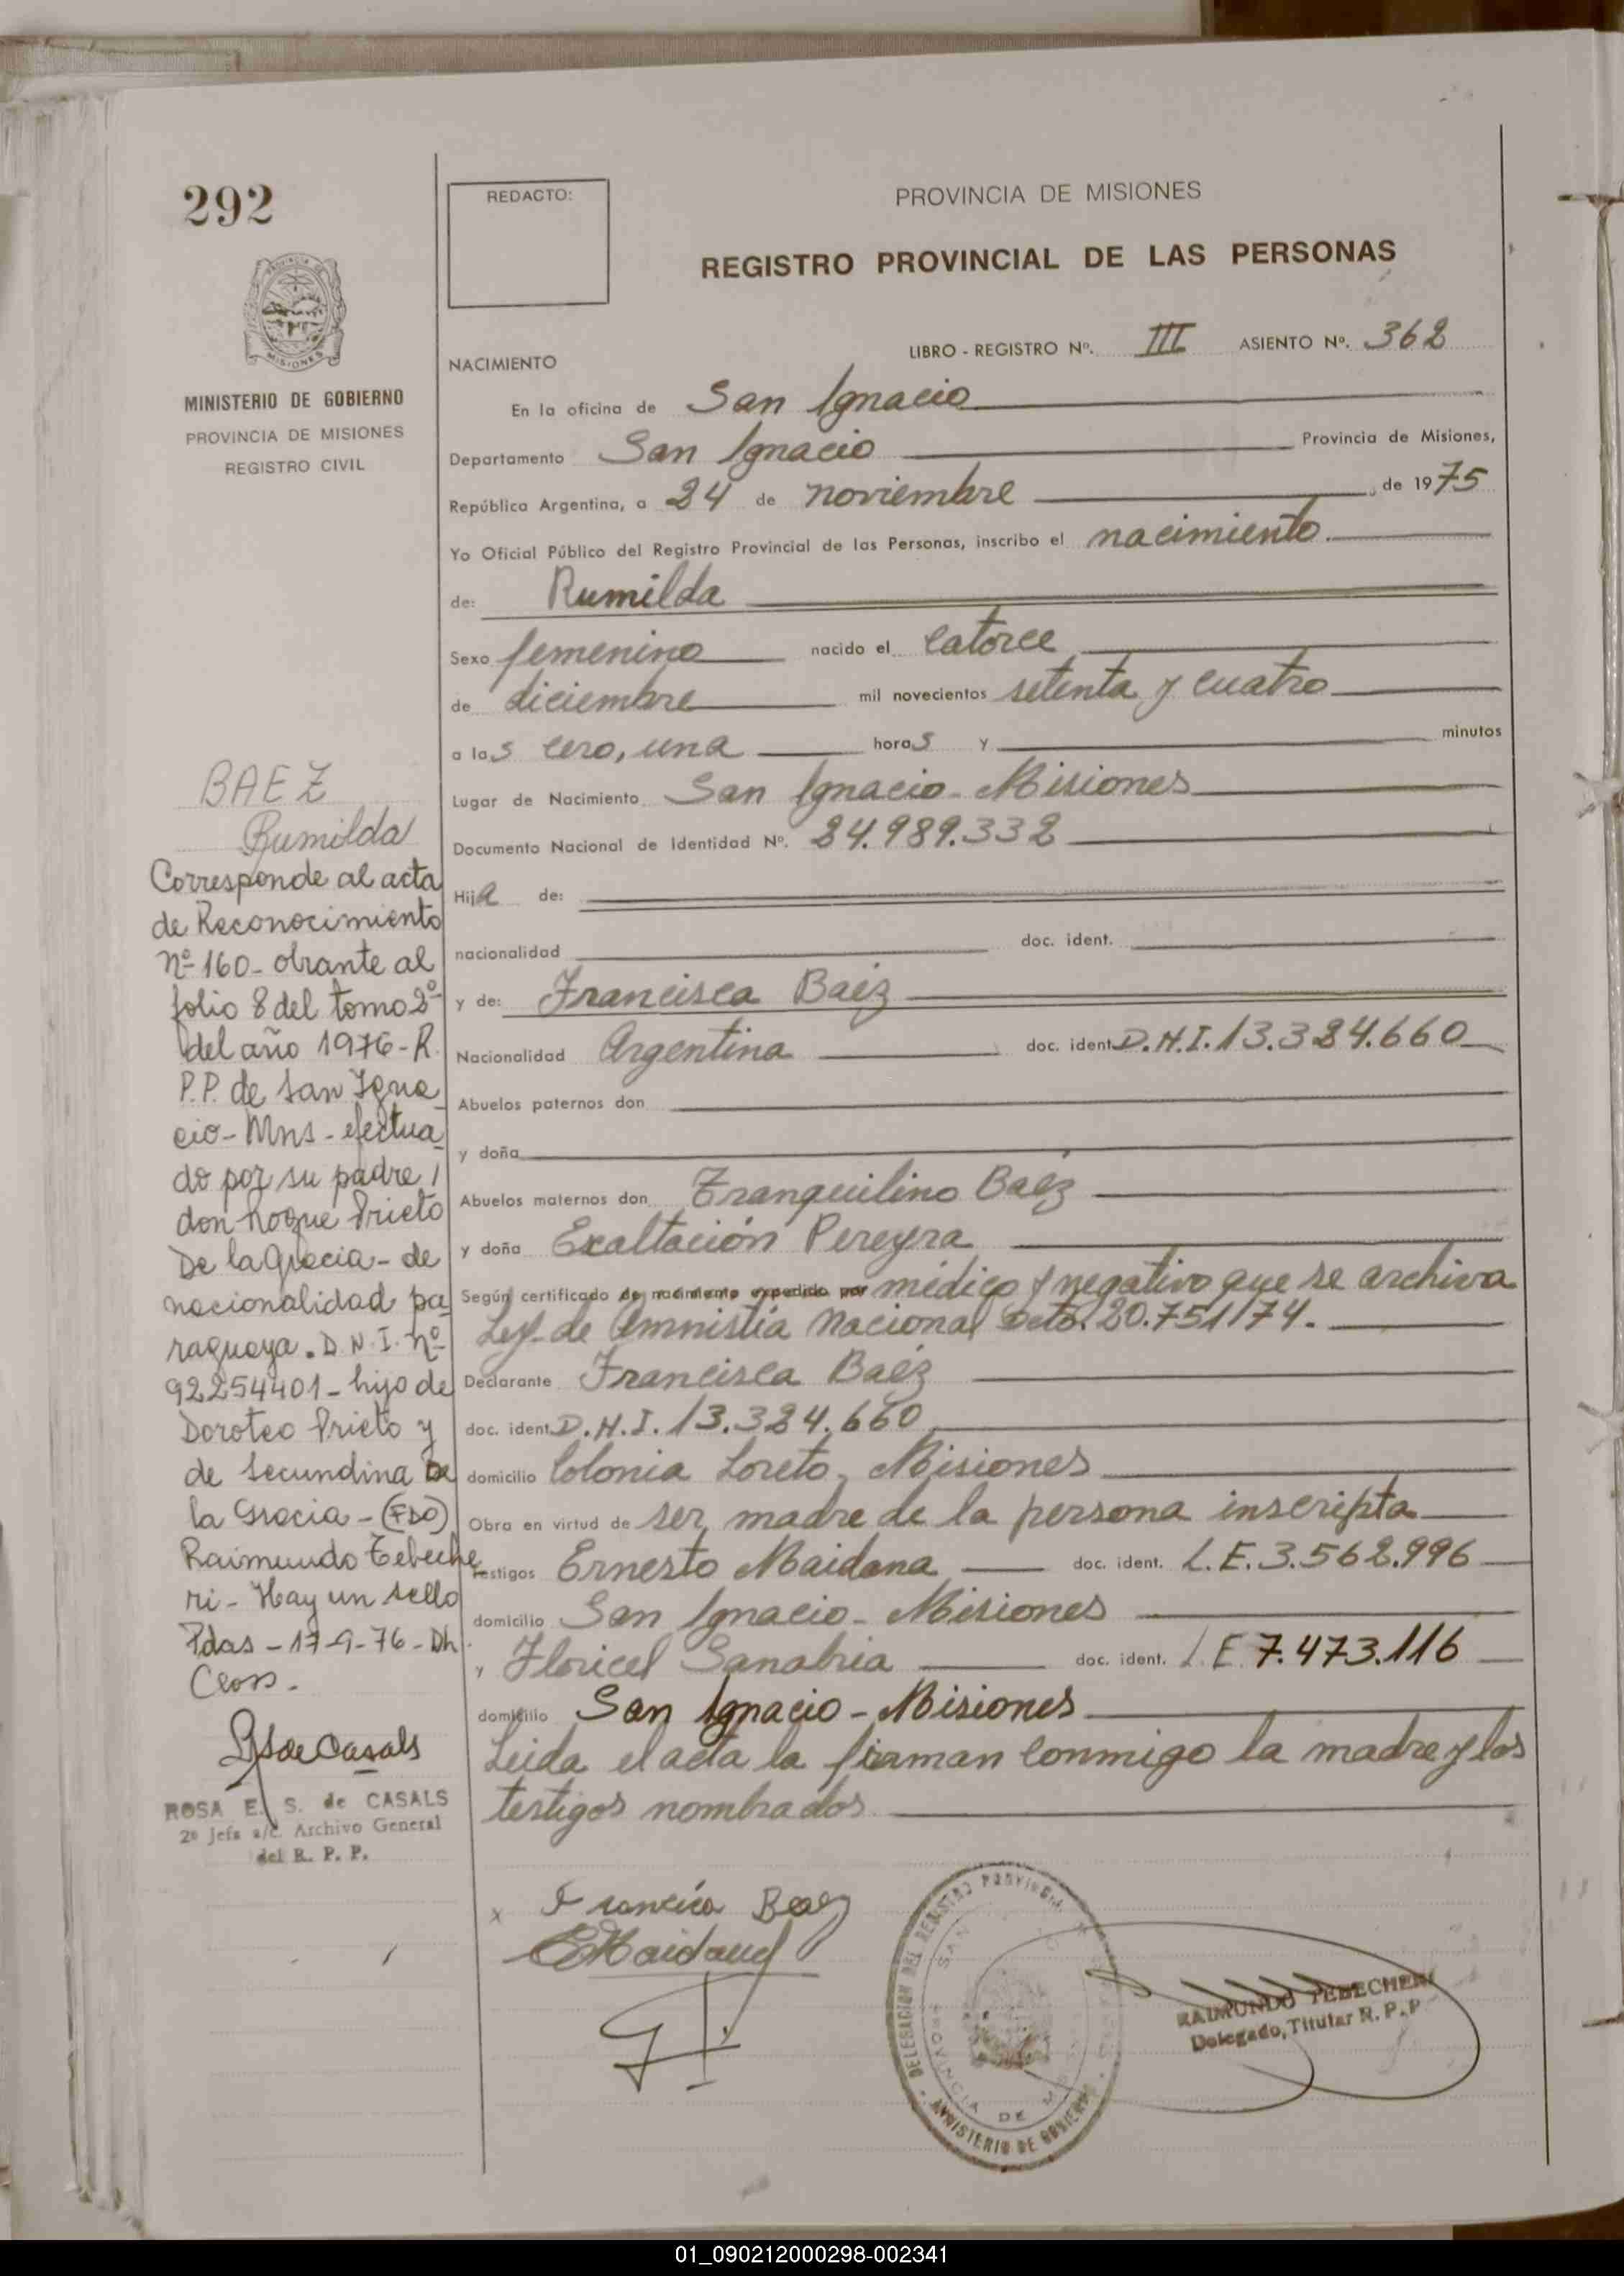 292
MISIONES
MINISTERIO DE GOBIERNO
PROVINCIA DE MISIONES
REGISTRO CIVIL
BAEZ
Rumilda
Corresponde al acta
de Reconocimiento
Nº 160 - obrante al
folio 8 del tomo 2º
del año 1976 - R.
P.P. de San Igna
cio - Mns - efectua
do por su padre
don Roque Prieto
De la Gracia - de
nacionalidad pa
raguaya. D.N.I. Nº
92254401 - hijo de
Doroteo Prieto y
de Secundina De
la Gracia - (FDO)
Raimundo Tebeche
ri - Hay un sello
Pdas - 17-9-76 - Dh.
Cross.
ROSA E. S. de CASALS
2º Jefa a/c. Archivo General
del R. P. P.
REDACTO:
PROVINCIA DE MISIONES
REGISTRO PROVINCIAL DE LAS PERSONAS
LIBRO - REGISTRO Nº. III ASIENTO Nº. 362
NACIMIENTO
En la oficina de San Ignacio
Departamento San Ignacio Provincia de Misiones,
República Argentina, a 24 de noviembre, de 1975
Yo Oficial Público del Registro Provincial de las Personas, inscribo el nacimiento
de: Rumilda
Sexo femenino nacido el Catorce
de diciembre mil novecientos setenta y cuatro
a las cero, una horas y minutos
Lugar de Nacimiento San Ignacio - Misiones
Documento Nacional de Identidad Nº. 24.989.332
Hija de:
nacionalidad doc. ident.
y de: Francisca Baéz
Nacionalidad Argentina doc. ident. D.N.I. 13.324.660
Abuelos paternos don
y doña
Abuelos maternos don Tranquilino Baéz
y doña Exaltación Pereyra
Según certificado de nacimiento expedido por médico y negativo que se archiva
Ley de Amnistía Nacional Dcto. 20.751/74.
Declarante Francisca Baéz
doc. ident. D.N.I. 13.324.660
domicilio Colonia Loreto, Misiones
Obra en virtud de ser madre de la persona inscripta
Testigos Ernesto Maidana doc. ident. L.E. 3.562.996
domicilio San Ignacio - Misiones
y Floricel Sanabria doc. ident. L.E. 7.473.116
domicilio San Ignacio - Misiones
Leida el acta la firman conmigo la madre y los
testigos nombrados
x Francisca Baez
EMaidana
DELEGACION DEL REGISTRO PROVINCIAL
SAN
PROVINCIA DE
MINISTERIO DE GOBIERNO
RAIMUNDO TEBECHERI
Delegado, Titular R. P. P.
01_090212000298-002341